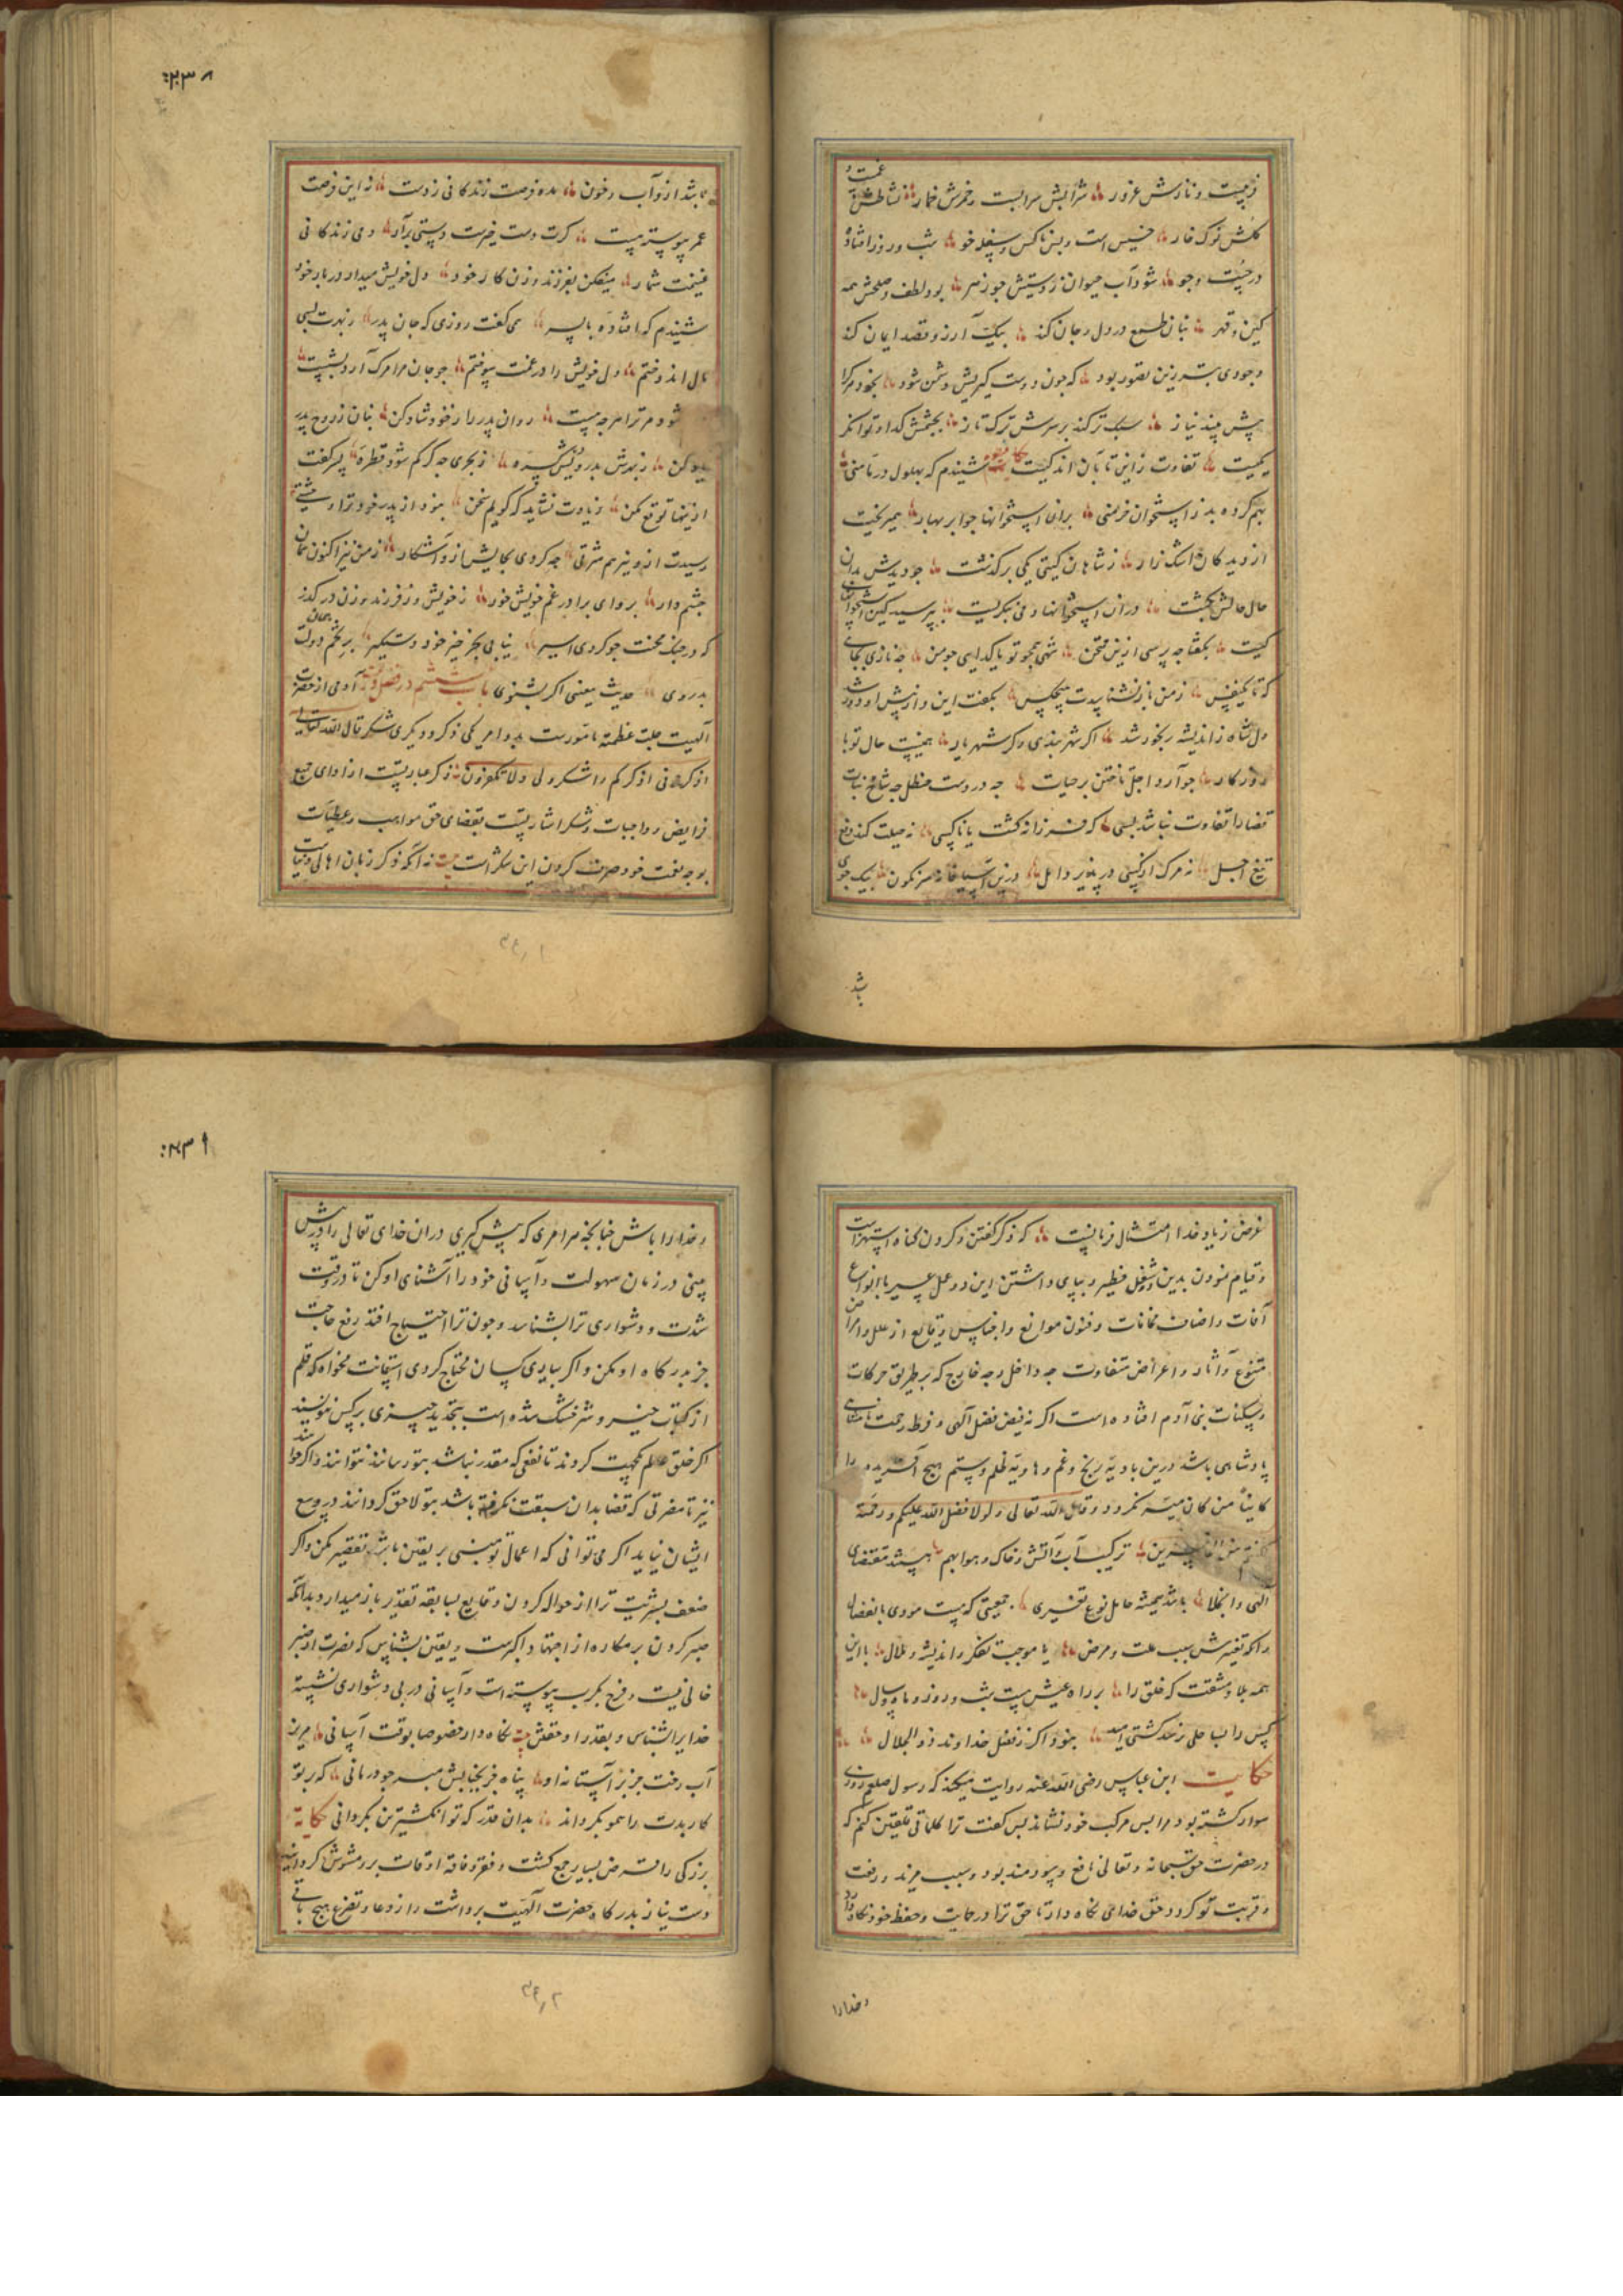 فریبست و نازش غرور شرابش سرابست و خمرش خمار نشاطش غمست و
گلش نوک خار خسیس است و بس ناکس و سفله خو شب و روز افتاده
در جست و جو شود آب حیوان ز دستش چو زهر بود لطف و صلحش همه
کین و قهر بنان طمع در دل و جان کند بیک آرزو قصد ایمان کند
وجودی بتر زین تصور بود که چون دوست گیریش دشمن شود
پیش بیند نیاز سبک ترکند بر سرش ترک تاز بچشمش گدا و توانگر
یکیست تفاوت ز این تا بآن اندکیست حکایت شنیدم که بهلول در
بهم کرده بد ز استخوان خرمنی بران استخوانها چو ابر بهار همیریخت
از دیدگان اشک زار ز شاهان گیتی یکی برگذشت چو دیدش بدان
حال حالش بگشت دران استخوانها و می بگریست بپرسید کین استخوانهای
کیست بگفتا چه پرسی ازین ممتحن شهی همچو تو یا گدایی چو من چه نازی بجایی
که تا یکنفس ز من باز نشناسدت هیچکس بگفت این و از پیش او دور شد
دل شاه ز اندیشه رنجور شد اگر شهربندی و گر شهریار همینست حال تو با
روزگار چو آرد اجل تاختن بر حیات چه در دست حنظل چه شاخ نبات
قضا را تفاوت نباشد بسی که فرزانه کشت یا ناکسی نه حیلت کند دفع
تیغ اجل نه مرگ از کسی در پذیرد امل درین آسیاخانه سرنگون بیک جوی
باشد
۲۳۸
باشد از و آب و خون مده فرصت زندگانی ز دست نه این فرصت
عمر پیوسته هست گرت دست خیرست دستی برآر دمی زندگانی
غنیمت شمار میفکن بفرزند و زن کار خود دل خویش میدار در بار خود
شنیدم که افتاده با پسر می گفت روزی که جان پدر ز بهرت بسی
مال اندوختم دل خویش را در غمت سوختم چو جان مرا مرگ آرد شکست
شود مر ترا هرچه هست روان پدر را ز خود شاد کن بنان ز روح پدر
یاد کن ز بهرش بدرویش ده ز بحری چه گر کم شود قطره پسر گفت
ازینها توقع مکن زیادت نشاید که گویم سخن بنزد از پدر خود ترا
رسیدت ازو نیز هم شربتی چه کردی بجایش ازو آشکار ز من نیز اکنون همان
چشم دار برو ای برادر غم خویش خور ز خویش و ز فرزند و زن در گذر
که در چنگ محنت چو کردی اسیر نیابی بجز خیر خود دستگیر بر تخم دولت همان
بدروی حدیث معنی اگر بشنوی باب ششم در فضل آدمی از حضرت
الهیت جلت عظمته مامورست بدو امر یکی ذکر و دیگری شکر قال الله تعالی
اذکرونی اذکرکم واشکروا لی ولا تکفرون ذکر عبارتست از ادای جمیع
فرایض و واجبات و شکر اشارتست بقضای حق مواهب و عطیات
بوجه نعمت خود صرف کردن این شکر است نه آنکه ذکر زبان
۳۶۱
غرض ز یاد خدا امتثال فرمانیست که ذکر گفتن و کردن گناه استهزاست
و قیام نمودن بدین دو شغل خطیر و بپای داشتن این دو عمل عسیر با انواع
آفات و اصناف مخافات و فنون موانع و اجناس وقایع از علل و امراض
متنوع و آثار و اعراض متفاوت چه داخل و چه خارج که بر طریق حرکات
و سکنات بنی آدم افتاده است اگر نه فیض فضل الهی و فرط رحمت نامتناهی
پادشاهی باشد درین بادیه رنج و غم و هاویه ظلم و ستم هیچ آفریده را
کاینا من کان میسر نگردد و قال الله تعالی ولولا فضل الله علیکم و رحمته
ترکیب آب و آتش و خاک و هوا بهم مقتضای
الهی و انحلال باشد همیشه حامل نوع تغیری جمعیتی که هست مودی بانفصال
و انکه تغیرش سبب علت و مرض یا موجب تفکر و اندیشه و ملال با این
همه بلا و مشقت که خلق را بر راه عیش هست شب و روز و ماه و سال
کس را بساحل نرسد کشتی امید بنود اگر ز فضل خداوند ذو الجلال
حکایت ابن عباس رضی الله عنه روایت میکند که رسول صلعم روزی
سوار گشته بود مرا بس مرکب خود نشاند بس گفت ترا کلماتی تلقین کنم که
در حضرت حق سبحانه و تعالی نافع و سودمند بود و سبب مزید و رفعت
و قربت تو گردد حق خدای نگاه دار تا حق ترا در حمایت و حفظ خود نگاه دارد
و خدا را
۲۳۹
و خدا را باش چنانچه هر امری که پیش گیری دران خدای تعالی را در پیش
بینی در زمان سهولت و آسانی خود را آشنای او کن تا در وقت
شدت و دشواری ترا بشناسد و چون ترا احتیاج افتد رفع حاجت
جز بدرگاه او مکن و اگر بیاری کسان محتاج گردی استعانت مخواه که قلم
از کتاب خیر و شر خشک شده است بتجدید چیزی بر کس ننویسند
اگر خلق عالم یکجهت گردند تا نفعی که مقدر نباشد بتو رسانند نتوانند و اگر خواهند
نیز تا مضرتی که قضا بدان سبقت نگرفته باشد بتو لاحق گردانند در وسع
ایشان نیاید اگر می توانی که اعمال تو مبنی بر یقین باشد تقصیر مکن و اگر
ضعف بشریت ترا از حواله کردن وقایع بسابقه تقدیر باز میدارد بدانکه
صبر کردن بر مکاره از اجتهاد اکبرست و یقین بشناس که نصرت از صبر
خالی نیست و فرج بکرب پیوسته است و آسانی در پی دشواری نشسته
خدا یرا بشناس و بقدر او حقش نگاه دار خصوصا بوقت آسانی مریز
آب رخت جز بر آستانه او پناه جز بجنابش مبر چو درمانی که بر تو
کار بدست را همو بگرداند بدان قدر که تو انگشترین بگردانی حکایة
بزرگی را قرض بسیار جمع گشت و فقر و فاقه اوقات برو مشوش گردانید
دست نیاز بدرگاه حضرت الهیت برداشت و از دعا و تضرع هیچ باقی
۳۶۲